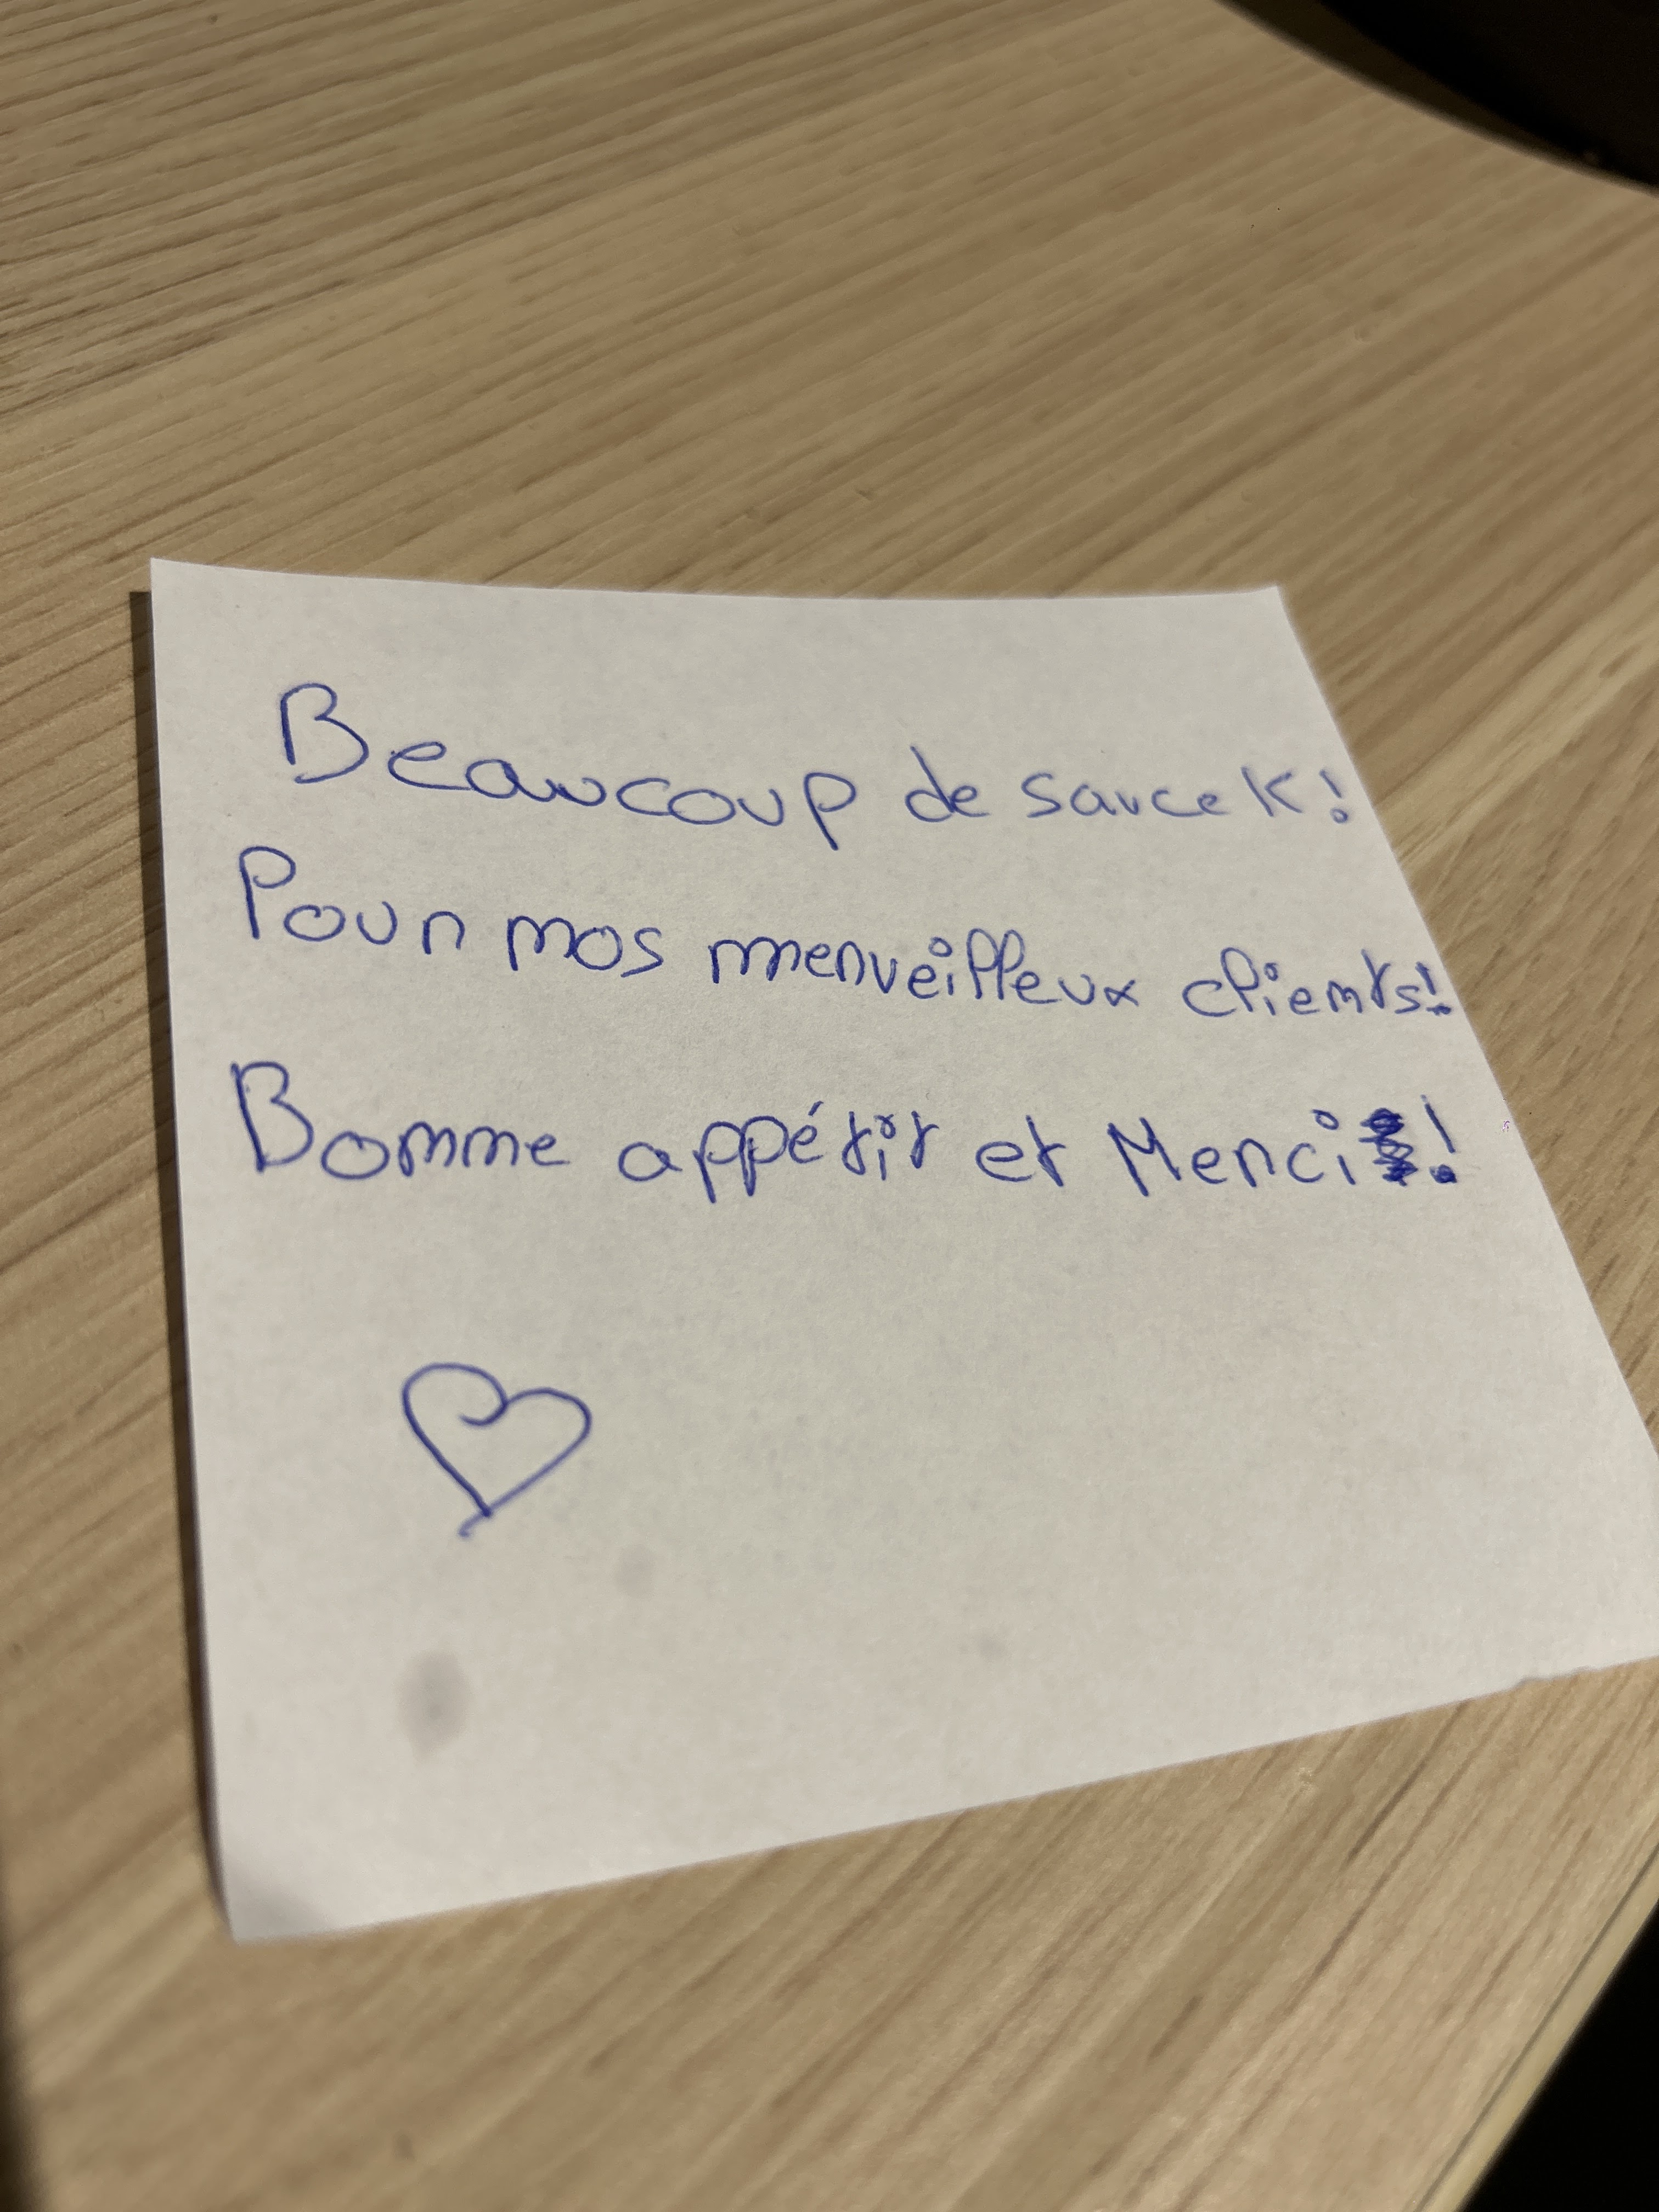 Beaucoup de sauce K!
Pour nos merveilleux clients!
Bonne appétit et Merci!